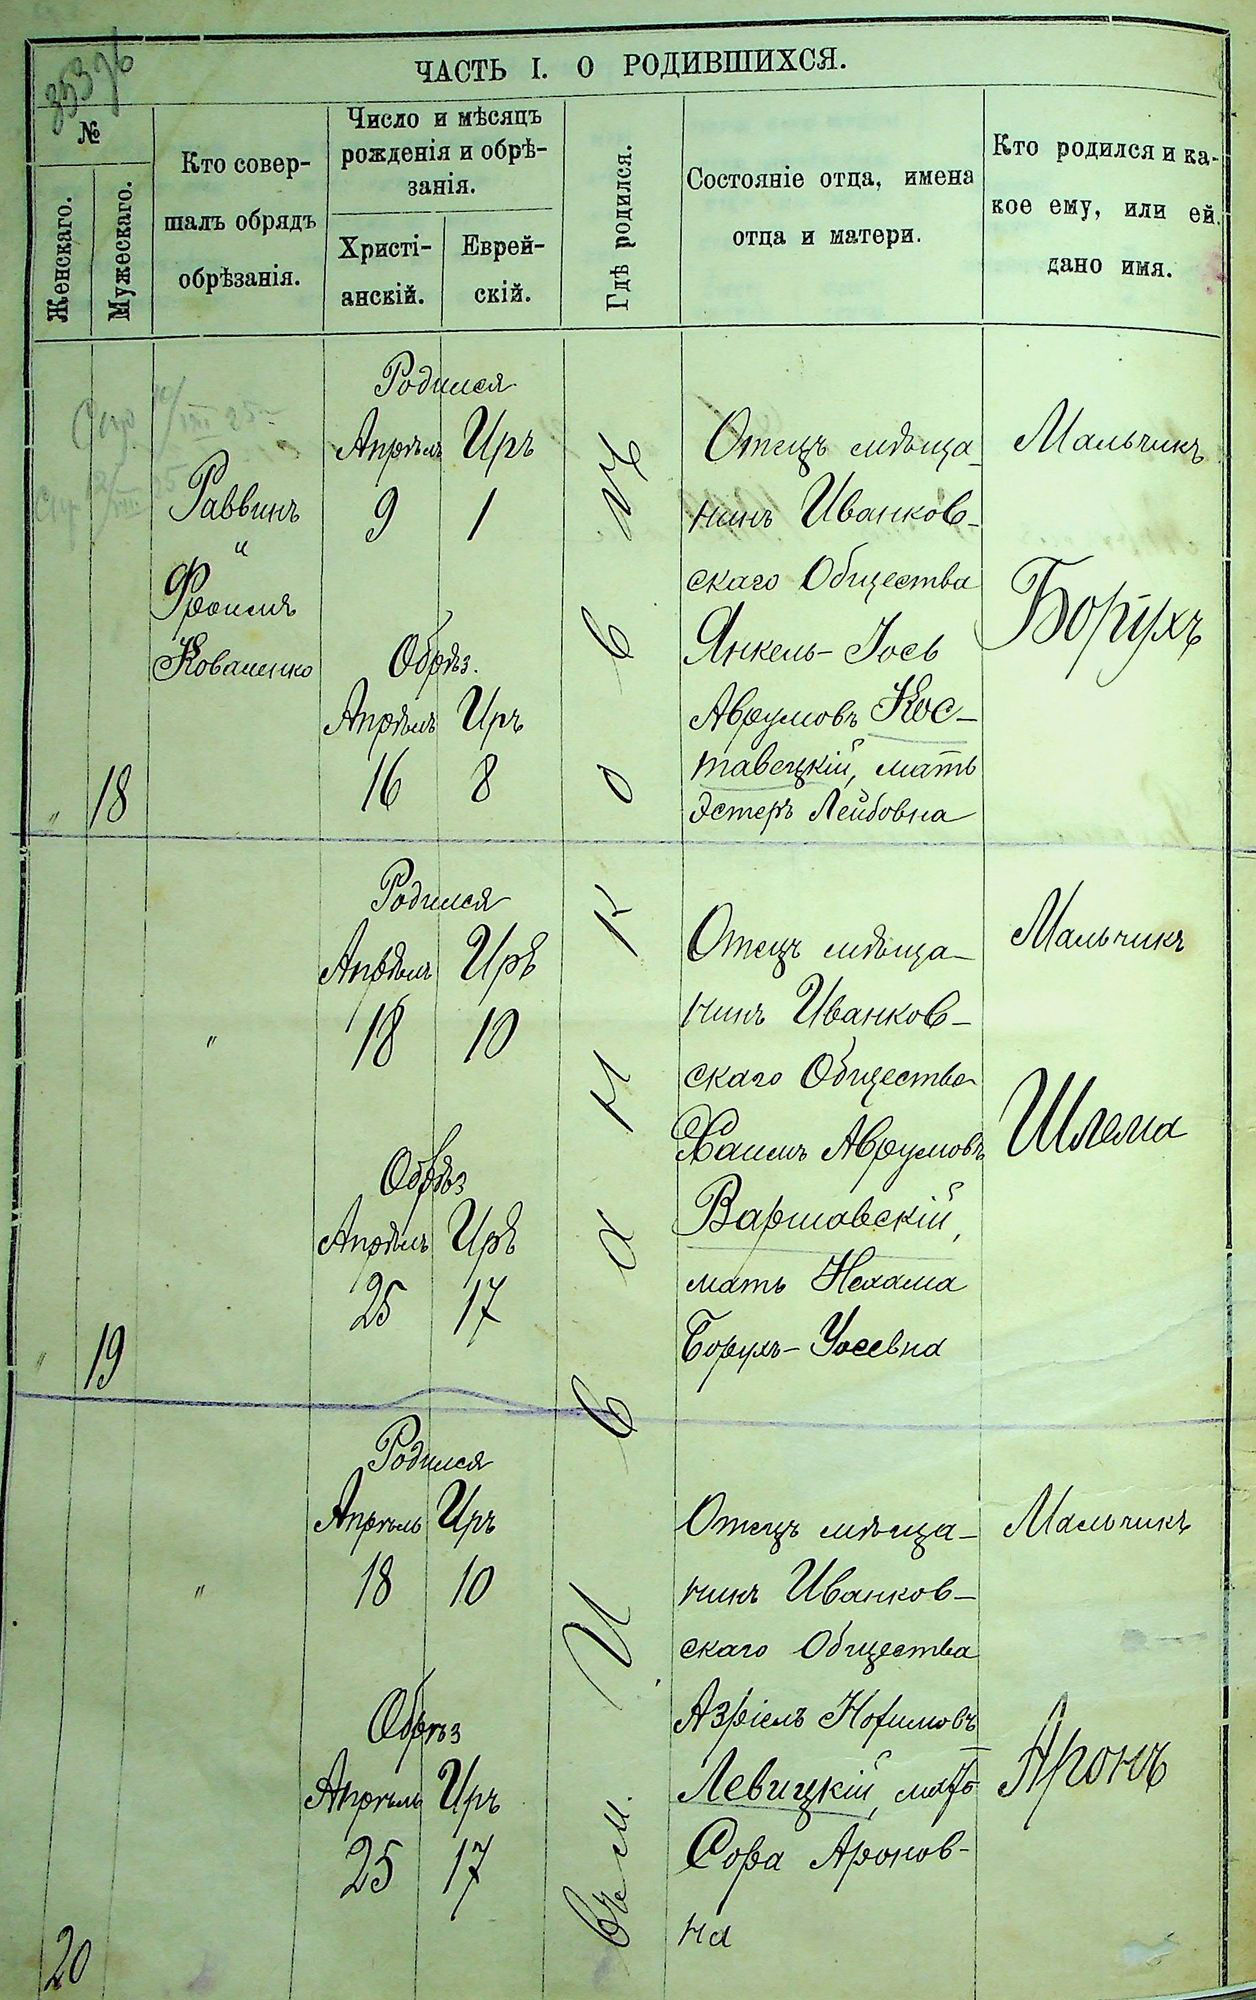 353 96
ЧАСТЬ I. О РОДИВШИХСЯ.
№
Женскаго.
Мужескаго.
Кто совер-
шалъ обрядъ
обрѣзанія.
Число и мѣсяцъ
рожденія и обрѣ-
занія.
Христі-
анскій.
Еврей-
скій.
Гдѣ родился.
Состояніе отца, имена
отца и матери.
Кто родился и ка-
кое ему, или ей
дано имя.
въ м. Иванковѣ
"
18
Раввинъ
и
Фроимъ
Коваленко
Родился
Апрѣль Иръ
9 1
Обрѣз.
Апрѣль Иръ
16 8
Отецъ мѣща-
нинъ Иванков-
скаго Общества
Янкель-Іось
Аврумовъ Кос-
тавецкій, мать
Эстеръ Лейбовна
Мальчикъ
Борухъ
"
19
"
Родился
Апрѣль Иръ
18 10
Обрѣз
Апрѣль Иръ
25 17
Отецъ мѣща-
нинъ Иванков-
скаго Общества
Хаимъ Аврумовъ
Варшавскій,
мать Нехама
Борухъ-Іосевна
Мальчикъ
Шлема
20
"
Родился
Апрѣль Иръ
18 10
Обрѣз
Апрѣль Иръ
25 17
Отецъ мѣща-
нинъ Иванков-
скаго Общества
Азріель Нохимовъ
Левицкій, мать
Сора Аронов-
на
Мальчикъ
Аронъ